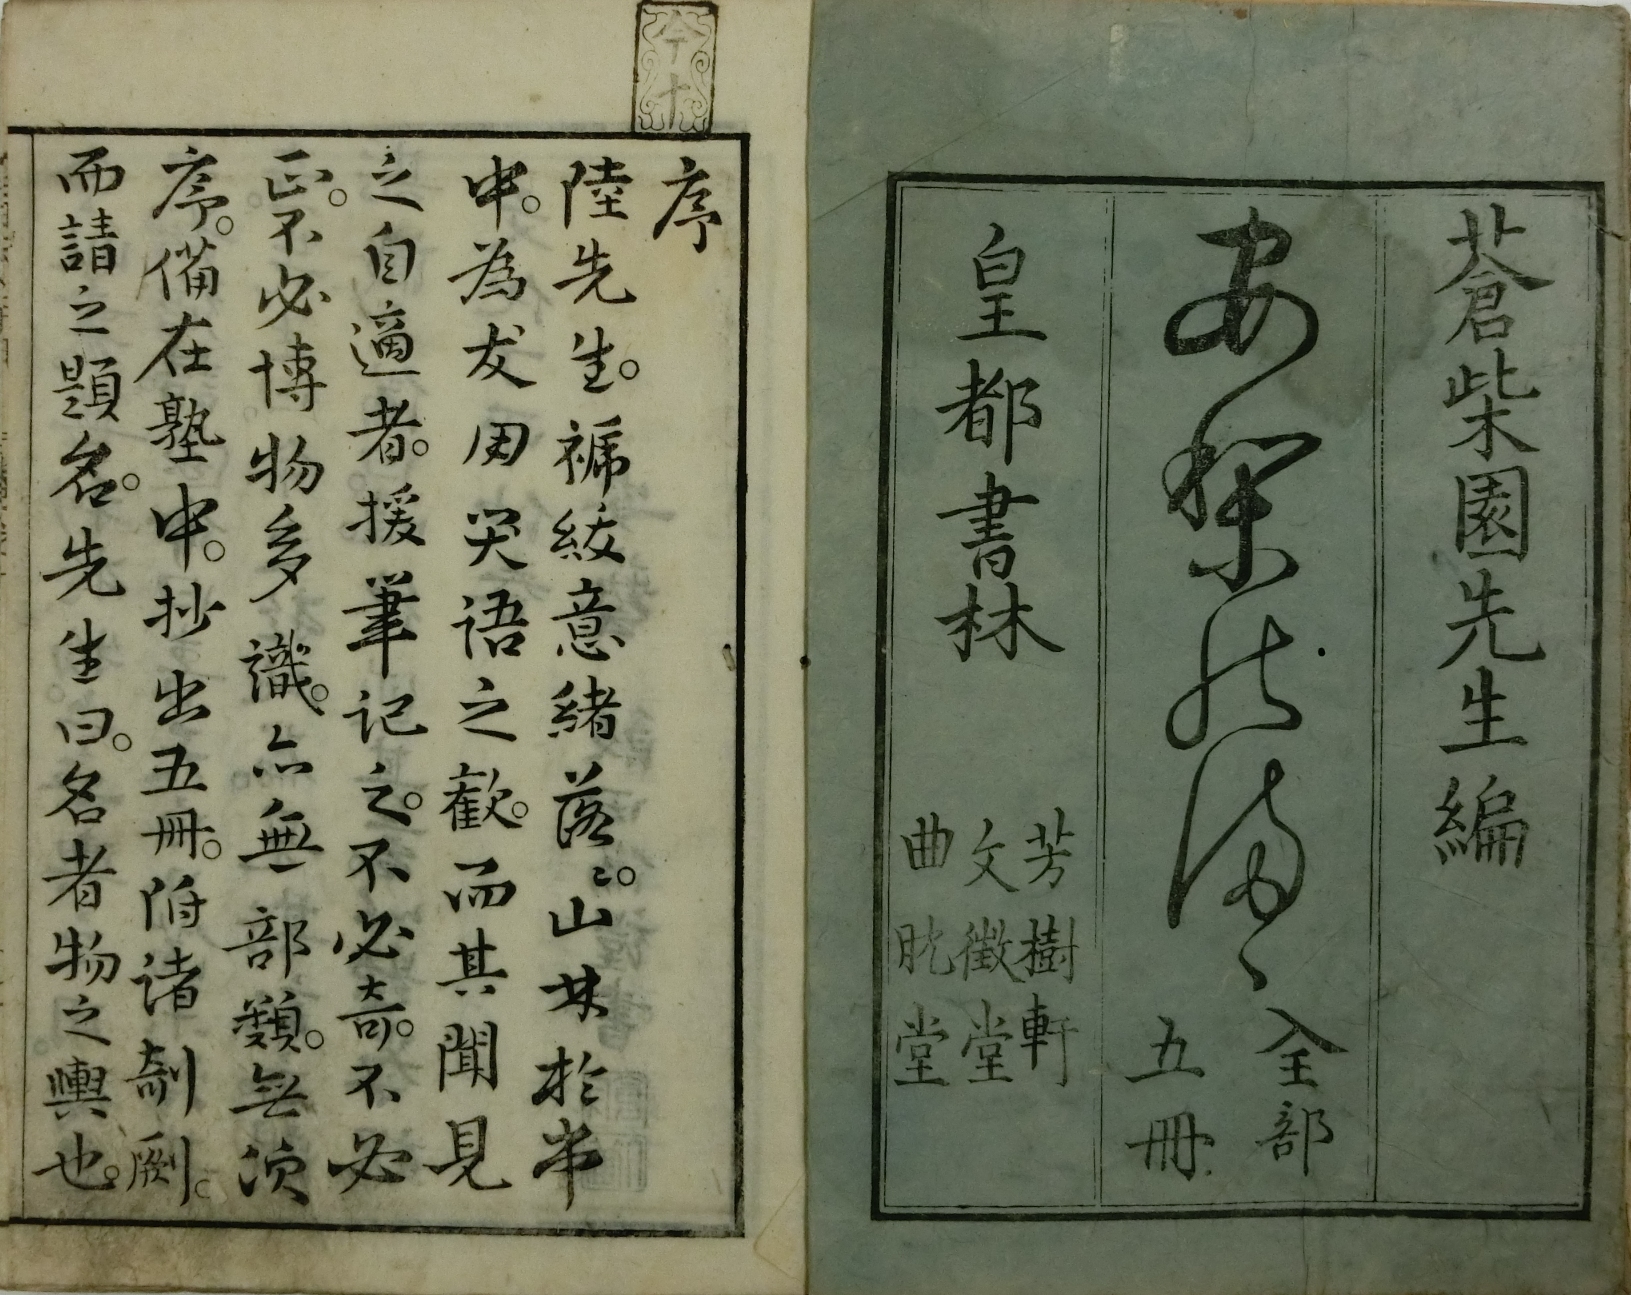 蒼柴園先生編
安梨能満ゝ
全部
五冊
皇都書林
芳樹軒
文徴堂
曲肱堂
今十
序
陸先生。褫紱意緒落〻。山林於市
中。為友用笑語之歡。而其聞見
之自適者。援筆記之。不必奇。不必
正。不必博物多識。亦無部類。無須
序。備在塾中。抄出五冊。附諸剞劂。
而請之題名。先生曰。名者物之輿也。